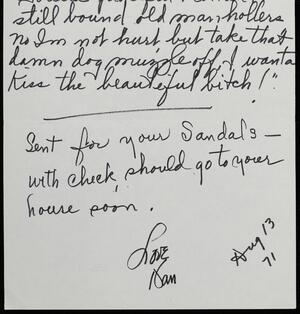 still bound old man hollers
no I'm not hurt but take that
damn dog muzzle off, I wanta
Kiss the beauteful bitch!".
Sent for your Sandals —
with check, should go to your
house soon.
Love
Nan
Aug 13
71